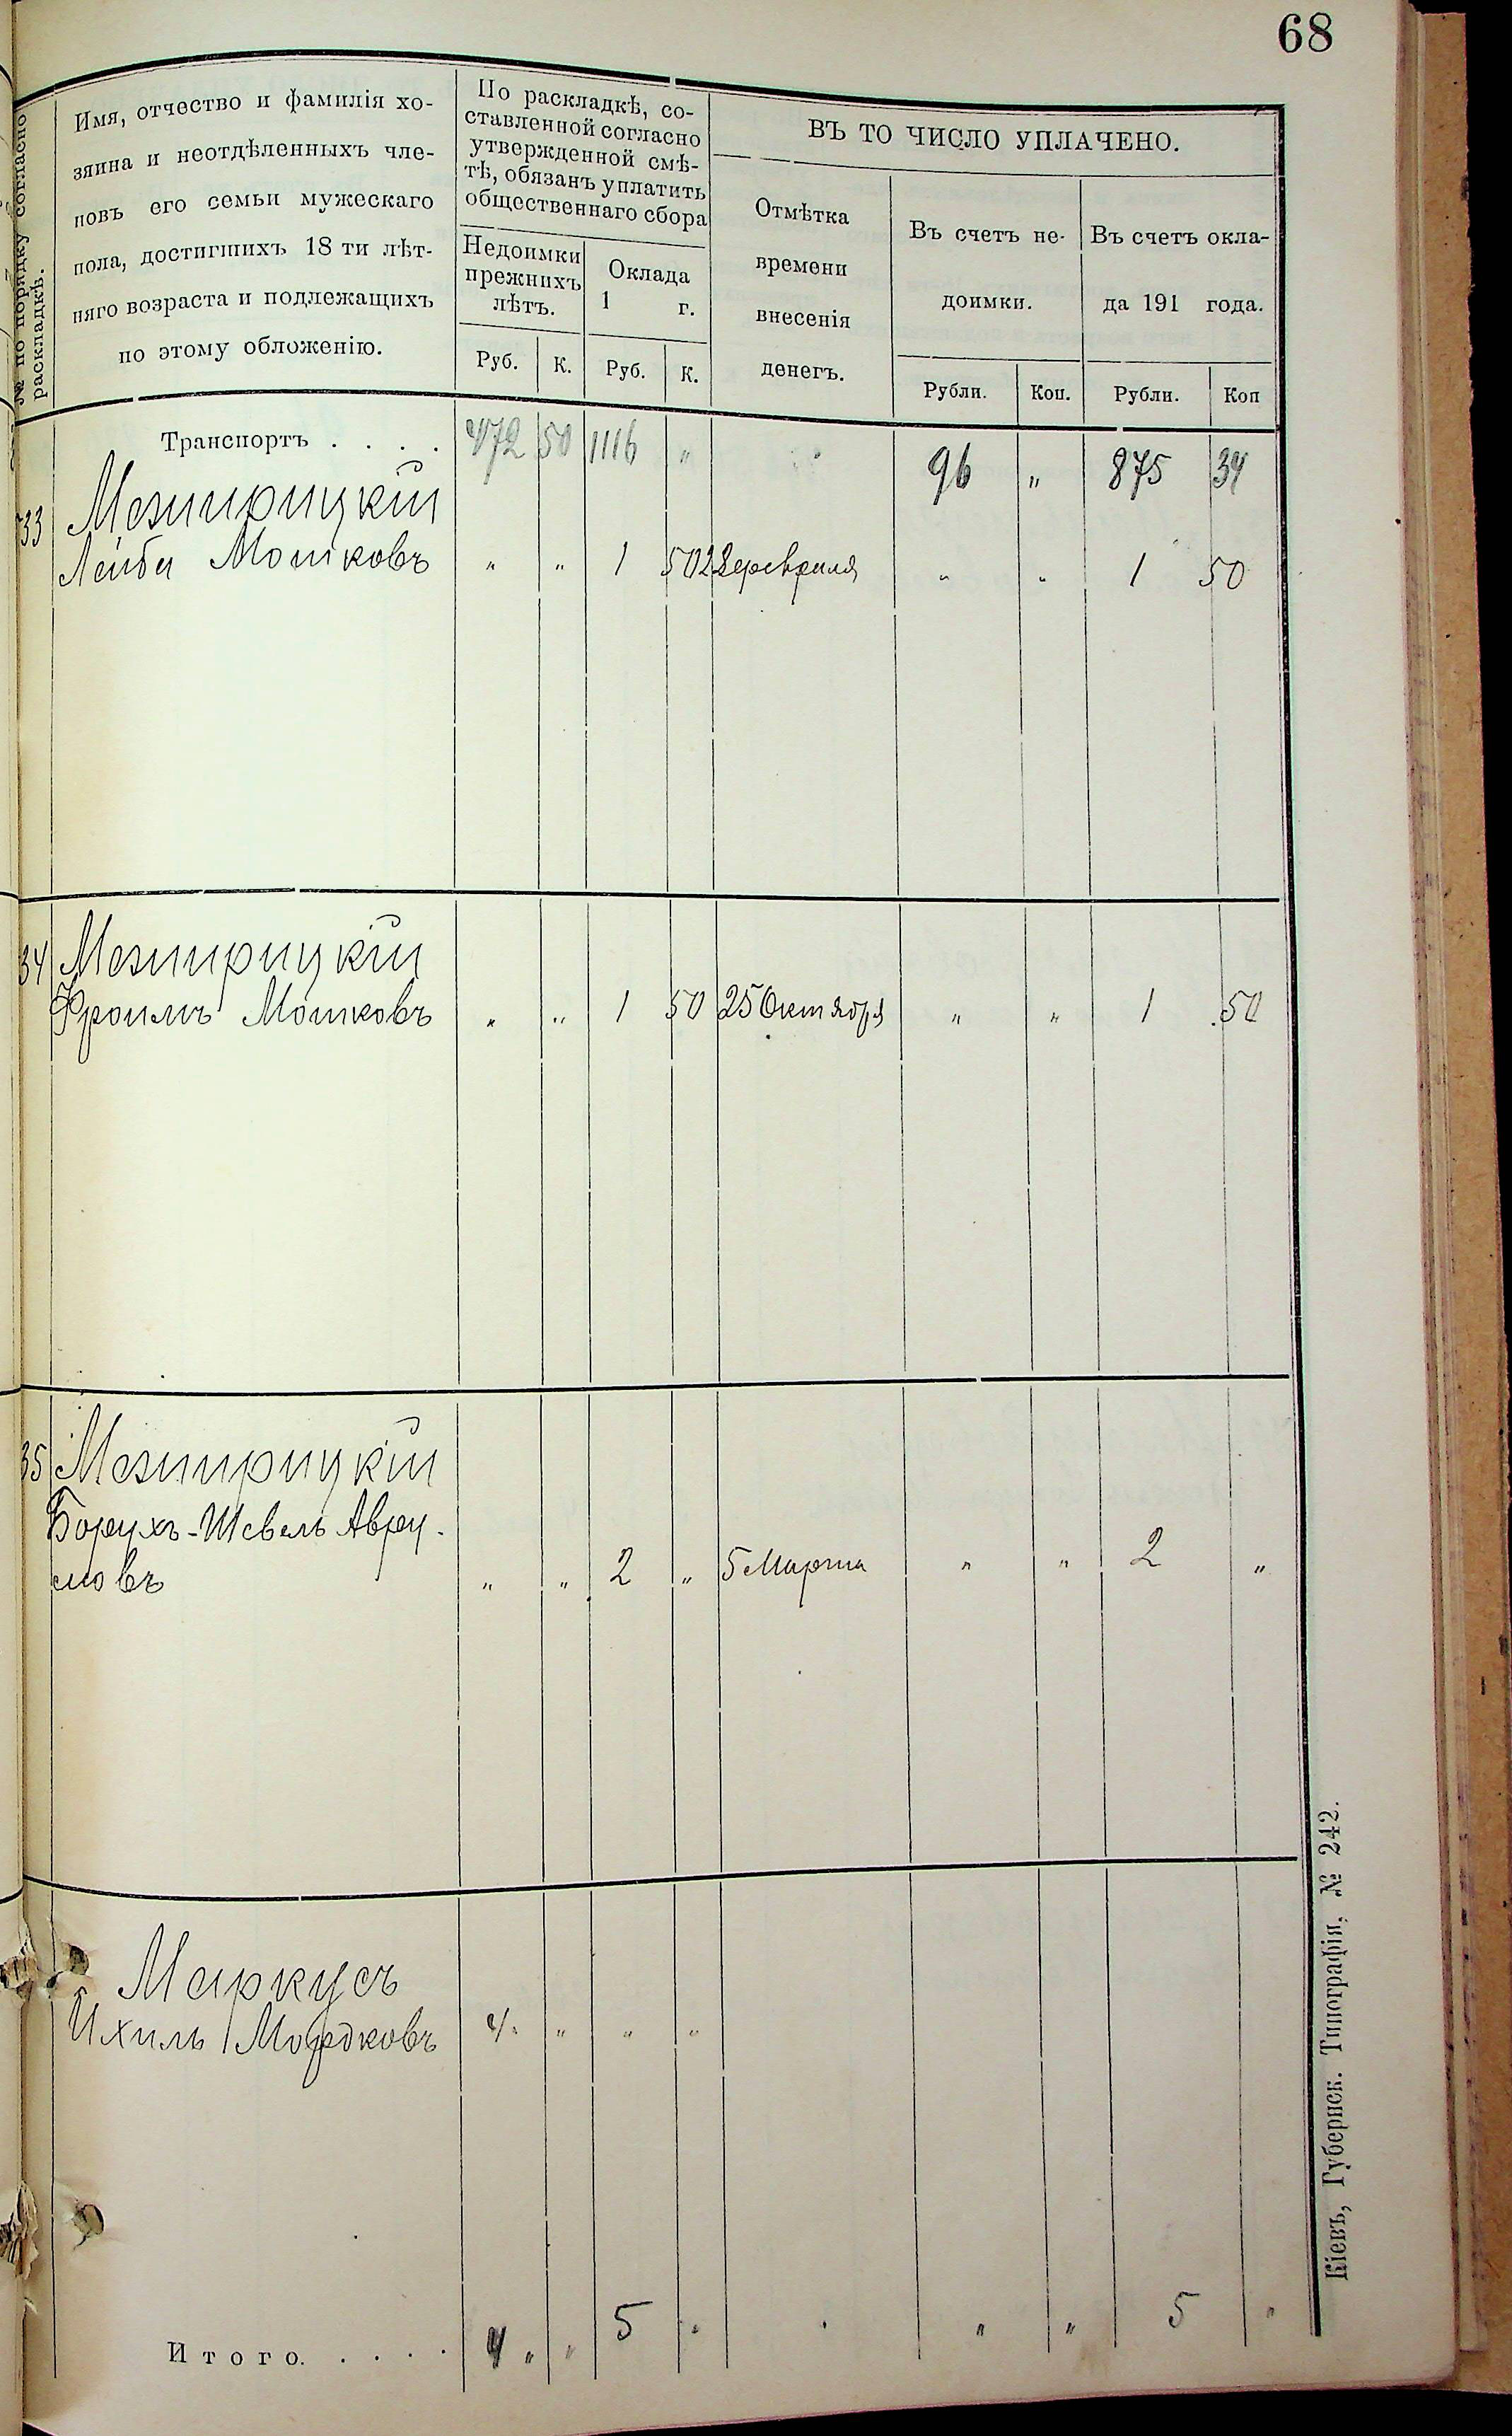 68
№ по порядку согласно
раскладкѣ.
Имя, отчество и фамилія хо-
зяина и неотдѣленныхъ чле-
новъ его семьи мужескаго
пола, достигшихъ 18 ти лѣт-
няго возраста и подлежащихъ
по этому обложенію.
По раскладкѣ, со-
ставленной согласно
утвержденной смѣ-
тѣ, обязанъ уплатить
общественнаго сбора
Недоимки
прежнихъ
лѣтъ.
Оклада
1 г.
Руб. К. Руб. К.
ВЪ ТО ЧИСЛО УПЛАЧЕНО.
Отмѣтка
времени
внесенія
денегъ.
Въ счетъ не-
доимки.
Въ счетъ окла-
да 191 года.
Рубли. Коп. Рубли. Коп
Транспортъ . . . . 472 50 1116 „ 96 „ 875 34
33 Мезирицкій
Лейба Мошковъ „ „ 1 50 22 февраля „ „ 1 50
34 Мезирицкій
Фроимъ Мошковъ „ „ 1 50 25 Октября „ „ 1 50
35 Мезирицкій
Борухъ-Шевель Авру-
мовъ „ „ 2 „ 5 Марта „ „ 2 „
Маркусъ
Ихиль Мордковъ 4 „ „ „
Итого. . . . . 4 „ „ 5 „ „ „ 5 „
Кіевъ, Губернск. Типографія, № 242.